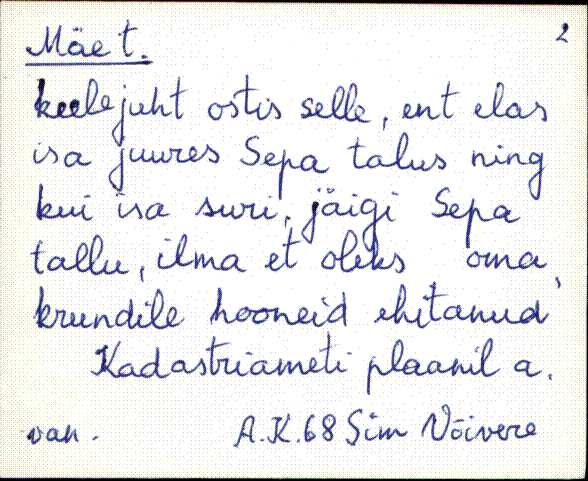 Mäe t. 2
keelejuht ostis selle, ent elas
isa juures Sepa talus ning
kui isa suri, jäigi Sepa
tallu, ilma et oleks oma
krundile hooneid ehitanud
Kadastriameti plaanil a.
van. A.K.68 Sim Võivere